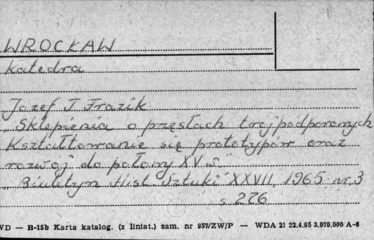 WROCŁAW
katedra
Józef T. Frazik
„Sklepienia o przęsłach trójpodporowych
Kształtowanie się prototypów oraz
rozwój do połowy XV w."
„Biuletyn Hist. Sztuki" XXVII, 1965 nr. 3
s. 226
WD — B-15b Karta katalog. (z liniat.) zam. nr 957/ZW/P — WDA 21 22.4.65 3.070.000 A-6